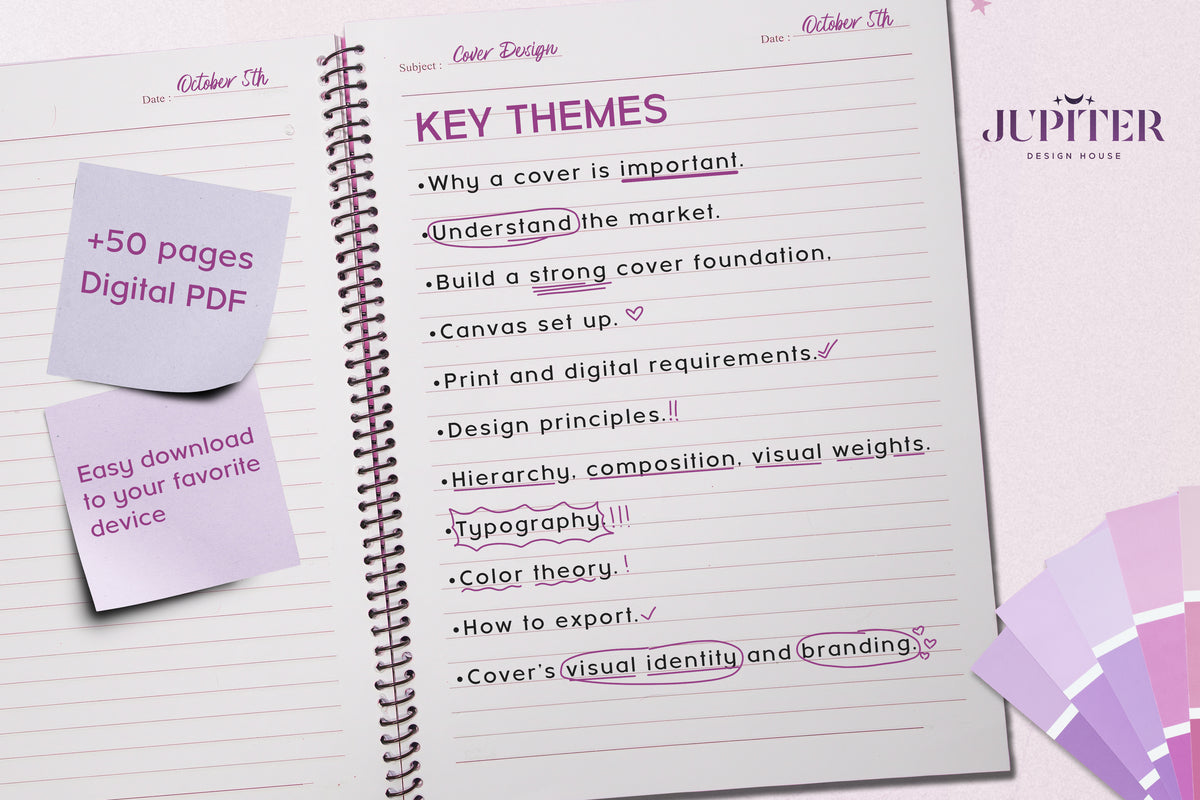 Date : October 5th
+50 pages
Digital PDF
Easy download
to your favorite
device
Subject : Cover Design
Date : October 5th
KEY THEMES
•Why a cover is important.
•Understand the market.
•Build a strong cover foundation.
•Canvas set up.
•Print and digital requirements.
•Design principles.!!
•Hierarchy, composition, visual weights.
•Typography.!!!
•Color theory. !
•How to export.
•Cover's visual identity and branding.
JUPITER
DESIGN HOUSE